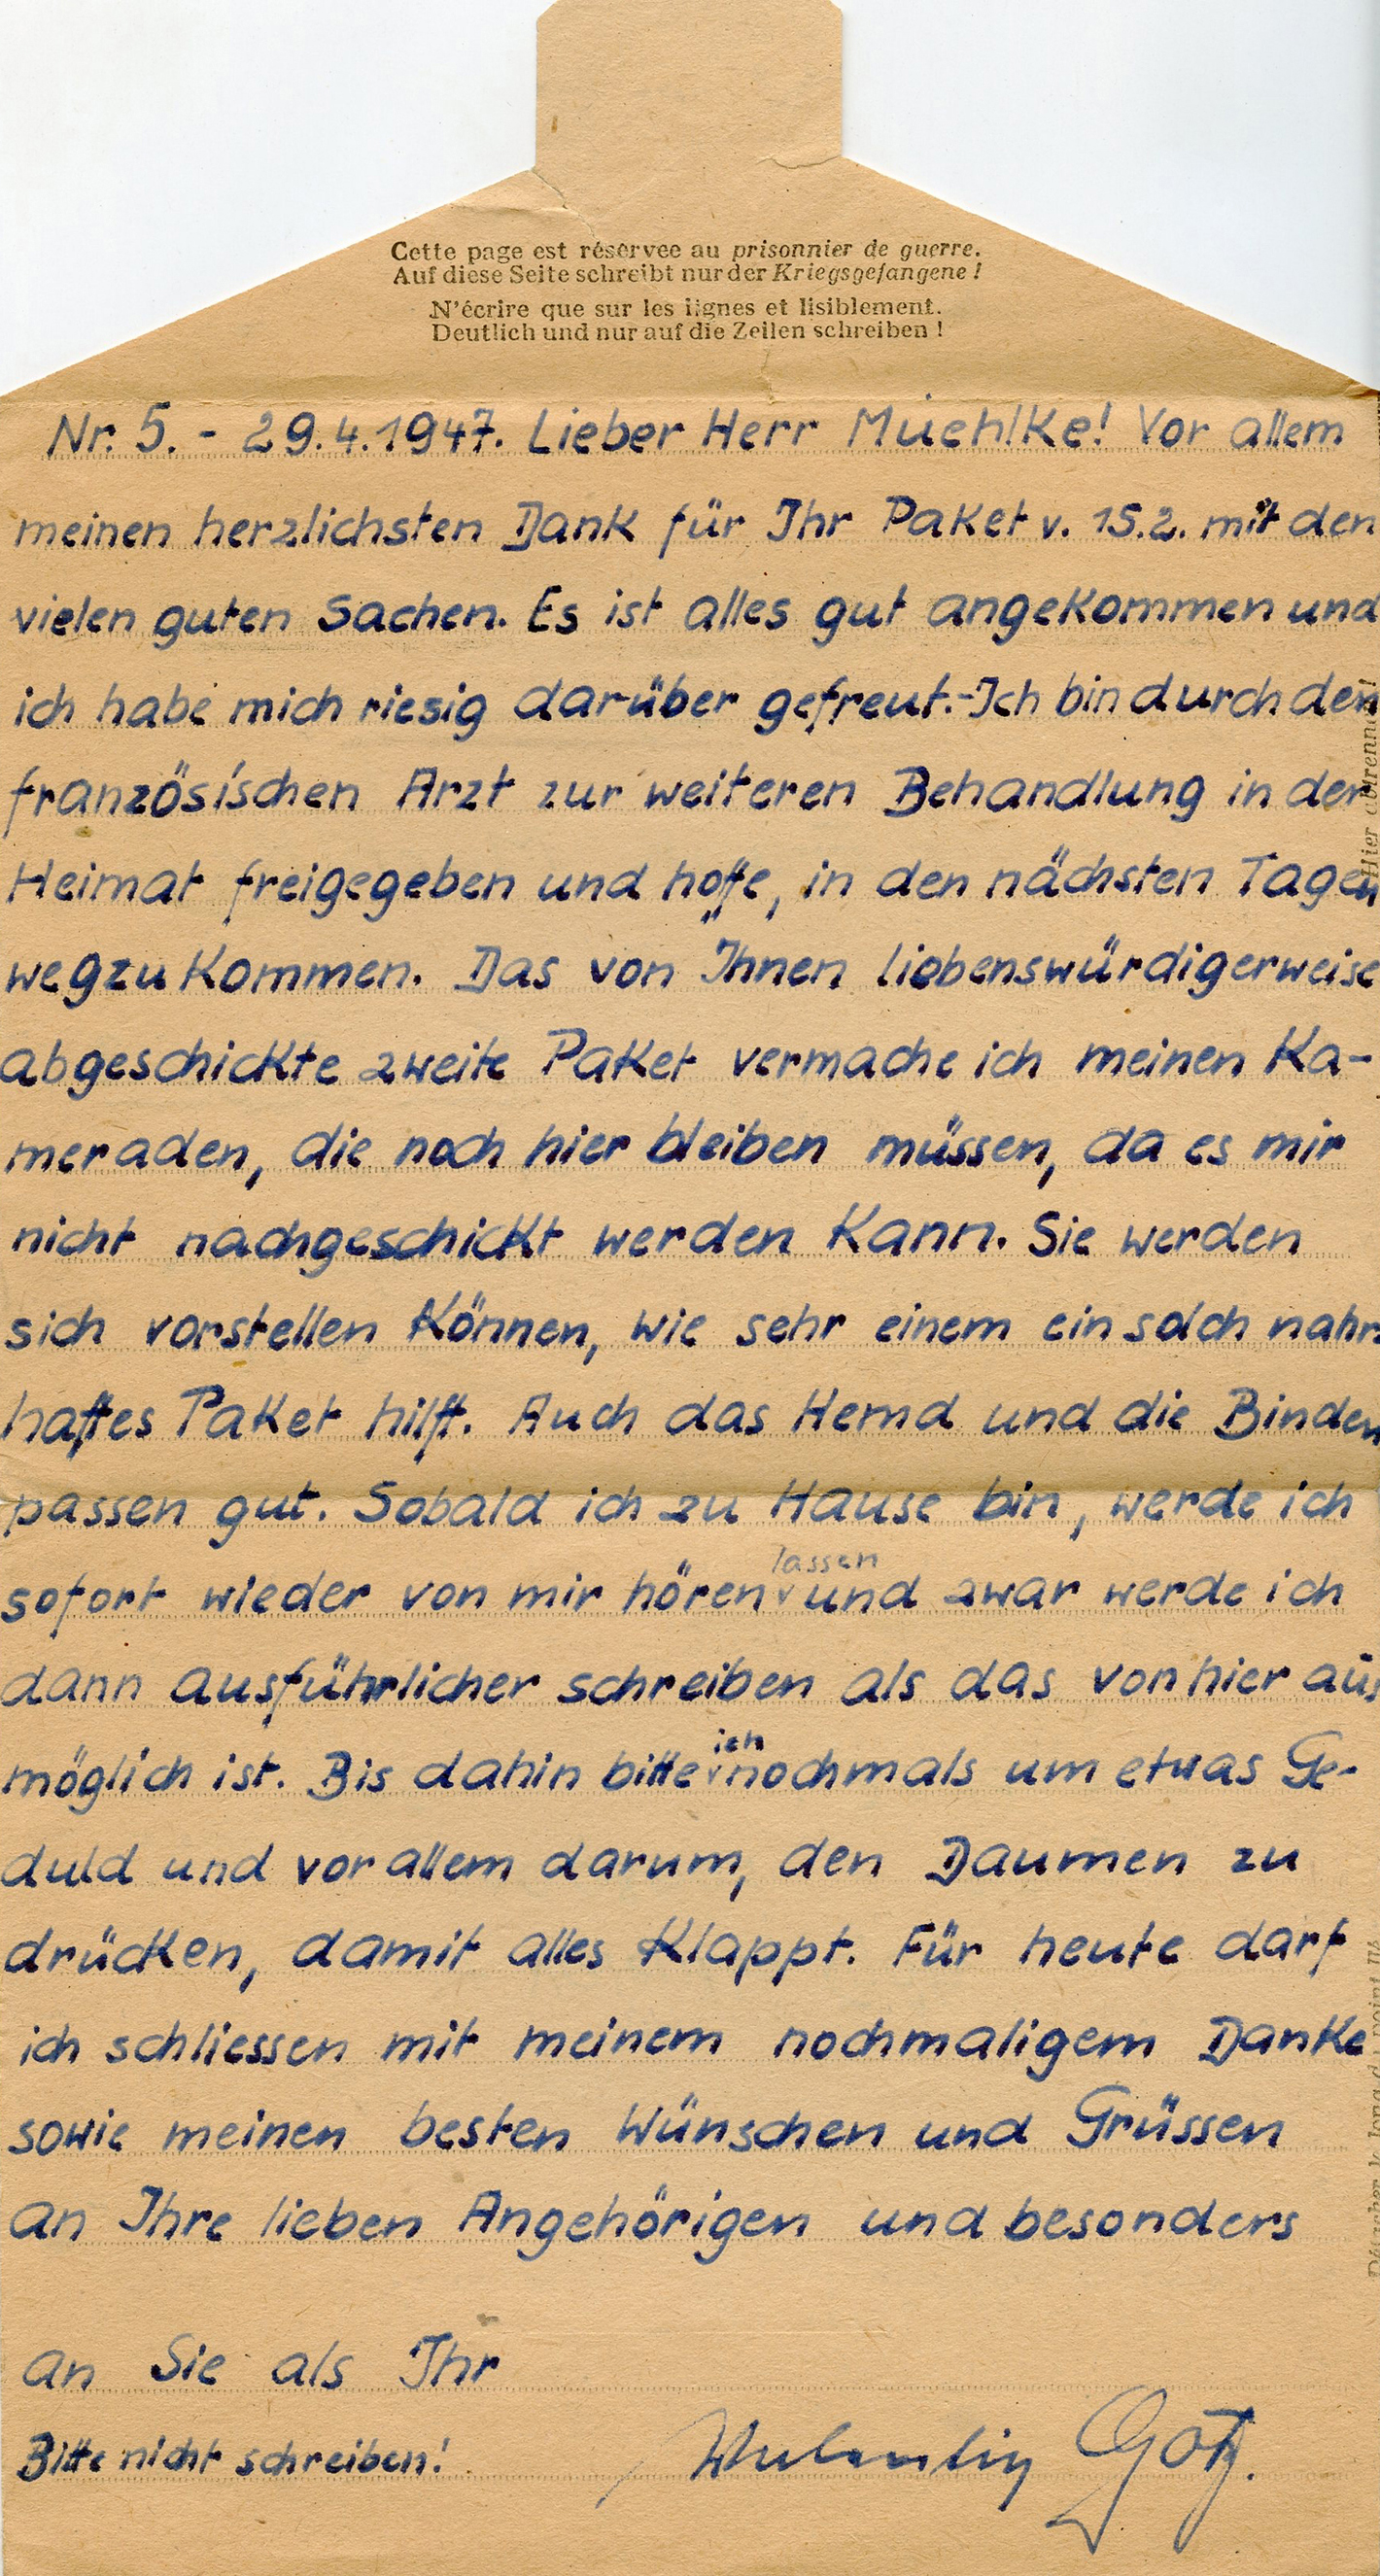 Cette page est réservee au prisonnier de guerre.
Auf diese Seite schreibt nur der Kriegsgefangene !
N'écrire que sur les lignes et lisiblement.
Deutlich und nur auf die Zeilen schreiben !
Nr. 5. - 29.4.1947. Lieber Herr Muehlke! Vor allem
meinen herzlichsten Dank für Ihr Paket v. 15.2. mit den
vielen guten Sachen. Es ist alles gut angekommen und
ich habe mich riesig darüber gefreut.-Ich bin durch den
französischen Arzt zur weiteren Behandlung in der
Heimat freigegeben und hoffe, in den nächsten Tagen
wegzukommen. Das von Ihnen liebenswürdigerweise
abgeschickte zweite Paket vermache ich meinen Ka-
meraden, die noch hier bleiben müssen, da es mir
nicht nachgeschickt werden kann. Sie werden
sich vorstellen können, wie sehr einem ein solch nahr-
haftes Paket hilft. Auch das Hemd und die Binden
passen gut. Sobald ich zu Hause bin, werde ich
lassen
sofort wieder von mir hören und zwar werde ich
dann ausführlicher schreiben als das von hier aus
ich
möglich ist. Bis dahin bitte nochmals um etwas Ge-
duld und vor allem darum, den Daumen zu
drücken, damit alles klappt. Für heute darf
ich schliessen mit meinem nochmaligem Danke
sowie meinen besten Wünschen und Grüssen
an Ihre lieben Angehörigen und besonders
an Sie als Ihr
Bitte nicht schreiben! Götz.
Hier abtrennen!